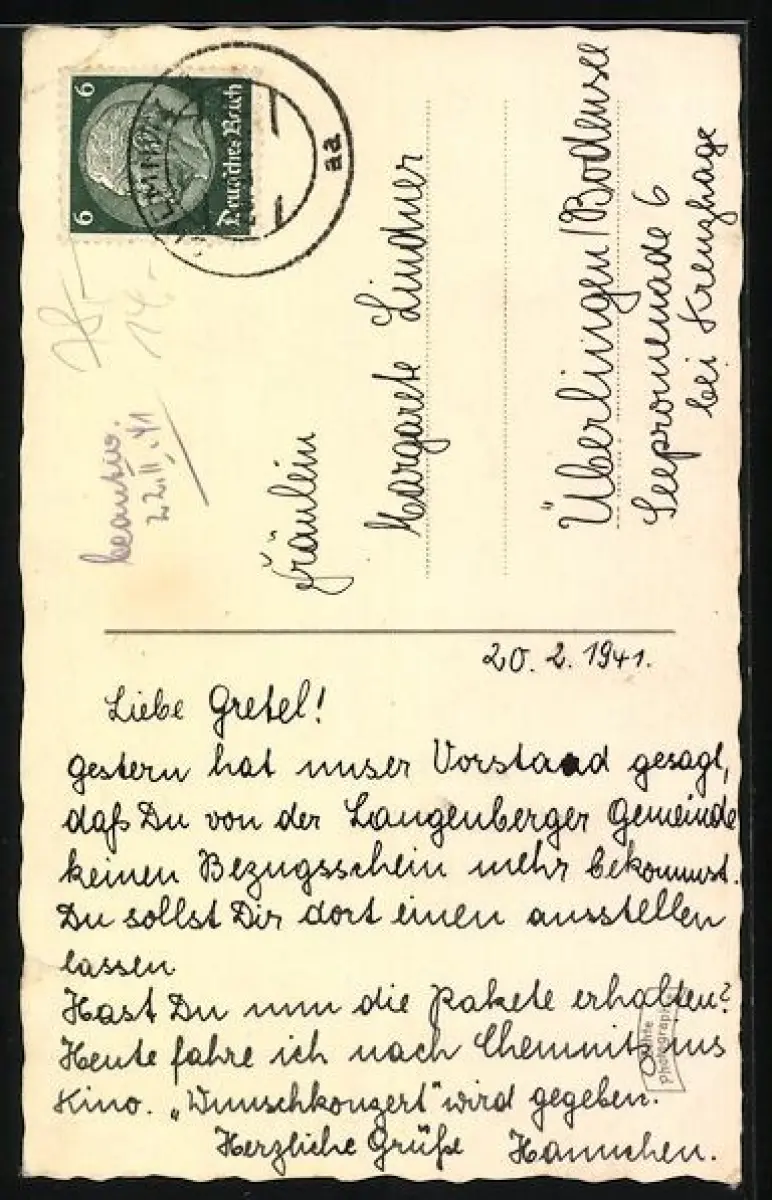 6
6
Deutsches Reich
aa
14.-
beantw.
22.II.41
Fräulein
Margarete Lindner
Überlingen/Bodensee
Seepromenade 6
bei Kreuzhage
20. 2. 1941.
Liebe Gretel!
Gestern hat unser Vorstand gesagt,
daß Du von der Langenberger Gemeinde
keinen Bezugsschein mehr bekommst.
Du sollst Dir dort einen ausstellen
lassen.
Hast Du nun die Pakete erhalten?
Heute fahre ich nach Chemnitz ins
Kino. „Wunschkonzert" wird gegeben.
Herzliche Grüße Hannchen.
Photographie